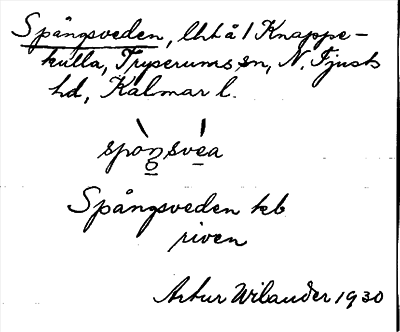 Spångsveden, lht å 1 Knappe-
kulla, Tryserums sn, N. Tjusts
hd, Kalmar l.
spòŋsvéa
Spångsveden kb
riven
Artur Wilander 1930